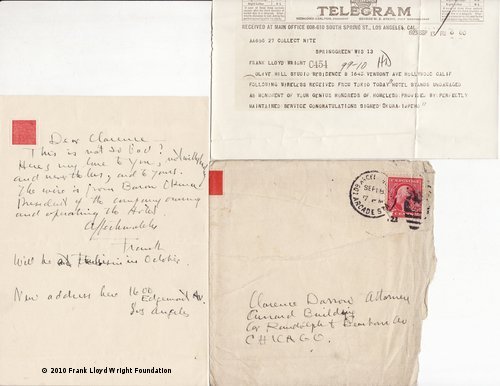 TELEGRAM
RECEIVED AT MAIN OFFICE 608-610 SOUTH SPRING ST., LOS ANGELES, CAL.
27 COLLECT NITE
SPRINGGREEN WIS 13
FRANK LLOYD WRIGHT
OLIVE HILL STUDIO RESIDENCE B 1645 VERMONT AVE HOLLYWOOD CALIF
FOLLOWING WIRELESS RECEIVED FROM TOKIO TODAY HOTEL STANDS UNDAMAGED
AS MONUMENT OF YOUR GENIUS HUNDREDS OF HOMELESS PROVIDED BY PERFECTLY
MAINTAINED SERVICE CONGRATULATIONS SIGNED OKURA IMPEHO
Dear Clarence
This is not so bad?
Here's my love to you,
and nevertheless, and to yours.
The wire is from Baron Okura
President of the company owning
and operating the Hotel
Affectionately
Frank
Will be in October.
New address here 1600
Edgemont
Los Angeles
SEP
ARCADE ST
Clarence Darrow Attorney
Cunard Building
Cor Randolph & Dearborn
CHICAGO.
© 2010 Frank Lloyd Wright Foundation